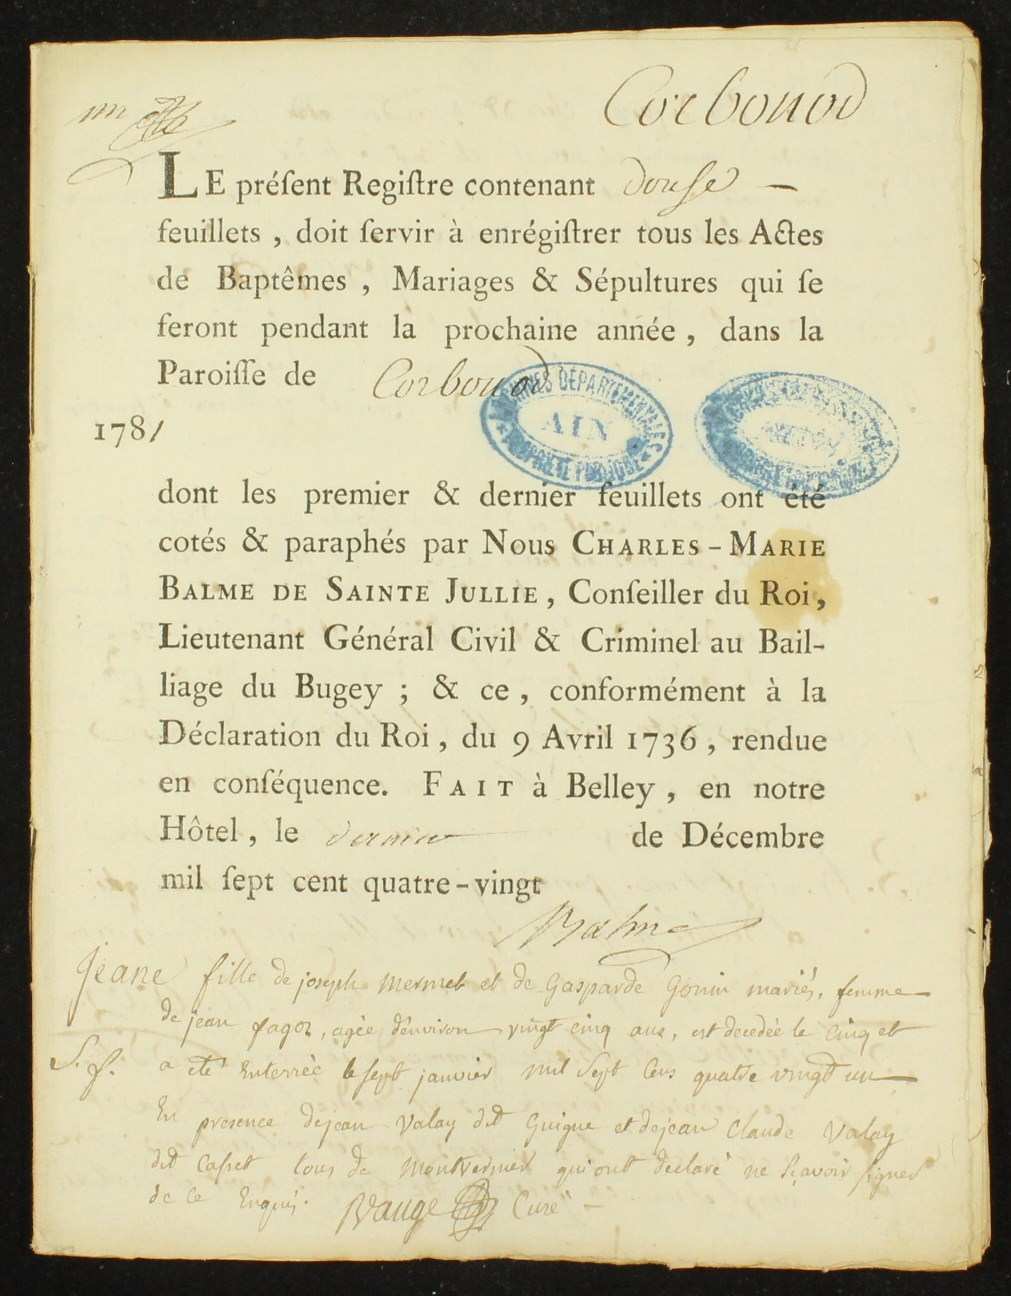 Corbonod
LE préſent Regiſtre contenant douse —
feuillets , doit ſervir à enrégiſtrer tous les Actes
de Baptêmes , Mariages & Sépultures qui ſe
feront pendant la prochaine année , dans la
Paroiſſe de Corbonod
ARCHIVES DÉPARTEMENTALES
AIN
PROPRIÉTÉ PUBLIQUE
1781
dont les premier & dernier feuillets ont été
cotés & paraphés par Nous CHARLES-MARIE
BALME DE SAINTE JULLIE, Conſeiller du Roi,
Lieutenant Général Civil & Criminel au Bail-
liage du Bugey ; & ce , conformément à la
Déclaration du Roi , du 9 Avril 1736 , rendue
en conſéquence. FAIT à Belley , en notre
Hôtel , le dernier de Décembre
mil ſept cent quatre-vingt
Balme
Jeane fille de joseph mermet et de Gasparde Gonin mariés, femme
de jean , agée d'environ vingt cinq ans, est decedée le cinq et
a eté Enterrée le sept janvier mil Sept Cens quatre vingt un
En presence dejean Valay dit Guigue et dejean Claude Valay
dit tous de qui ont declaré ne sçavoir signer
de ce Enquis. Curé